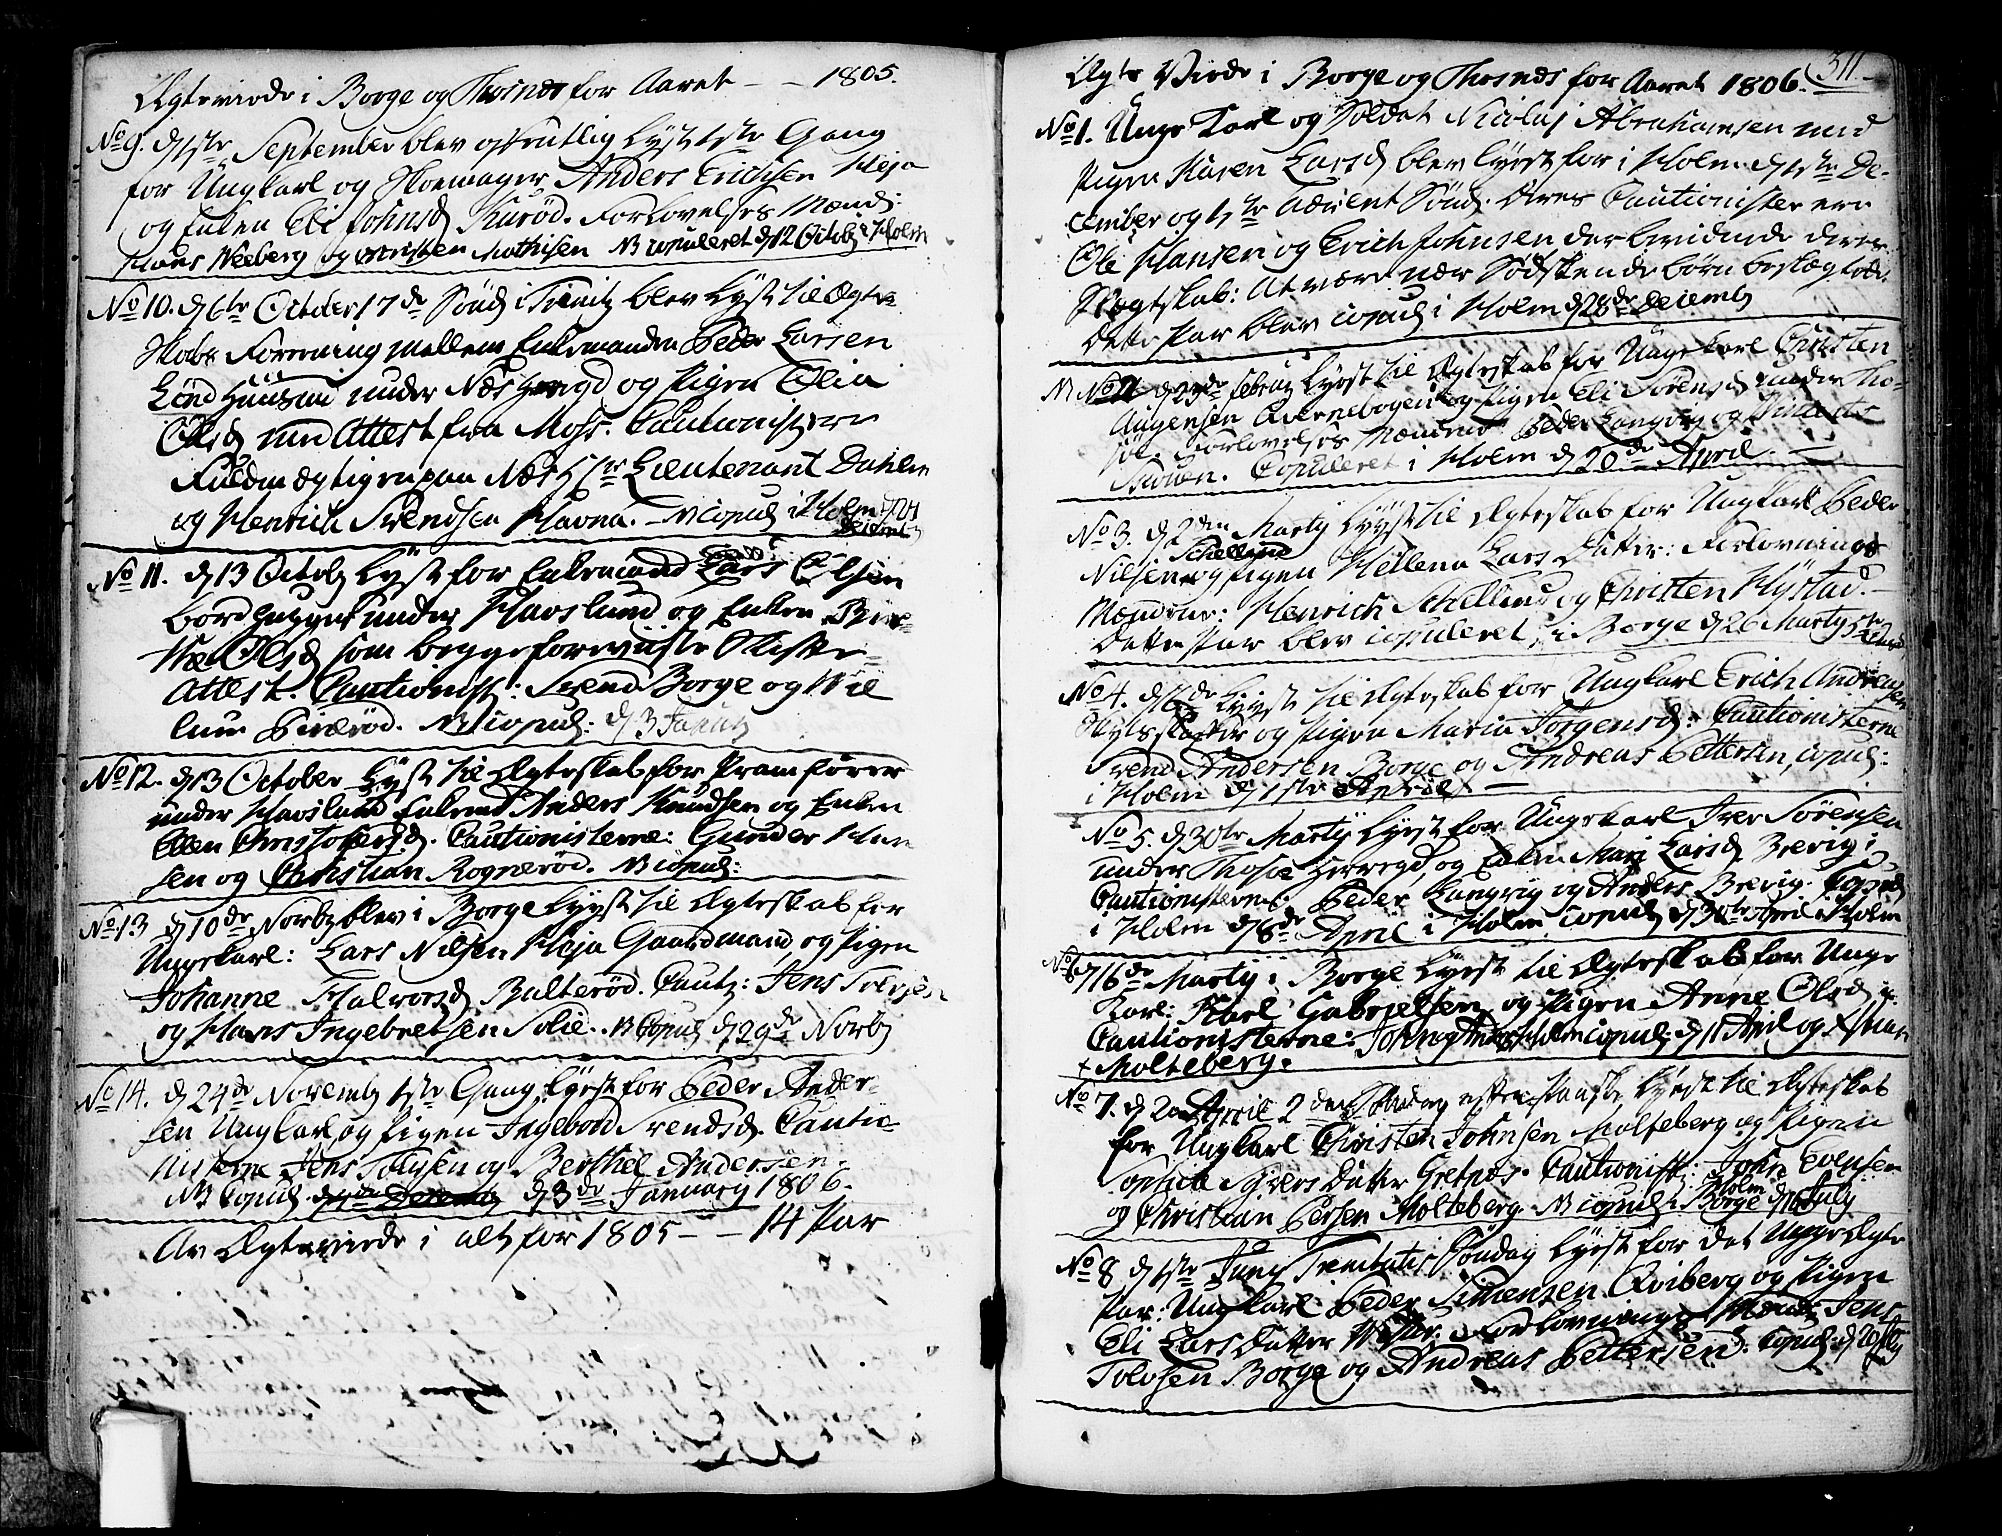 Ægteviede i Borge og Thorsnæs for Aaret - - 1805.
No 9. d 1ste September blev offentlig lyst 1ste Gang
for Ungkarl og Skoemager Anders Erichsen Heja
og Enken Eli Johnsd Kurød. Forlovelses Mænd:
Hans Weeberg og Christen Mathisen NB copuleret d 12 Octob i Holm
No 10. d 6te October 17de Sønd i Trinit blev lyst til Ægte-
skabs Forening mellem Enkemanden Peder Larsen
under Næs og Pigen Olia
Olsd med Attest fra Moss. Cautionister
paa Næs Hr Lieutenant Dahlen
og Henrich Svendsen Havna. - NB copul i Holm
No 11. d 13 Octob lyst for Enkemand Lars Olsen
under Hafslund og Enken
Olsd som begge foreviiste Skifte-
Attest. Cautionist: Svend Borge og Wil
lum NB copul: d 3 Januar
No 12. d 13 October lyst til Ægteskab for Pramfører
under Hafslund Enkemd Anders Knudsen og Enken
Ellen Christophersd. Cautionisterne: Gunder Han
sen og Christian Rognerød. NB copul:
No 13 d 10de Novbr blev i Borge lyst til Ægteskab for
Ungekarl: Lars Nilsen Heja Gaardmand og Pigen
Johanne Halvorsd Balterød. Caut: Jens
og Hans Ingebretsen Solie. NB Copul d 29de Novb
No 14. d 24de Novemb 1ste Gang lyst for Peder Ander-
sen Ungkarl og Pigen Ingebord Svendsd. Cautio-
nisterne Jens Tolfsen og Berthel Andersen.
NB Copul d 3de January 1806.
Av Ægteviede i alt for 1805 - - 14 Par
311
Ægte Viede i Borge og Thorsnæs for Aaret 1806.
No 1. Unge Karl og Soldat Nicolaj Abrahamsen med
Pigen Karen Larsd blev lyst for i Holm d 1ste De-
cember og 1ste Advent Sønd. Deres Cautionister ere
Ole Hansen og Erich Johnsen der beviidnede deres
Slægtskab: At være nær Sødskendebørn beslægtede.
Dette Par blev copul i Holm d 28de Decemb
NB No 2 d 23de Febru lyst til Ægteskab for Ungekarl Christen
Augensen og Pigen Eli Sørensd under Tho-
søe. Forlovelses Mændene Peder og
Copuleret i Holm d 20de April.
No 3. d 2den Marty lyst til Ægteskab for Ungkarl Peder
Nilsen Schellund og Pigen Hellena Lars Datter: Forlovnings
Mændene: Henrich Schellund og Christen Hystad. -
Dette Par blev copuleret i Borge d 26 Marty
No 4. d 16de lyst til Ægteskab for Ungkarl Erich Andersen
og Pigen Maria Jørgensd: Cautionisterne
Svend Andersen Borge og Andreas Pettersen, copul:
i Holm d 1ste April -
No 5. d 30te Marty lyst for Ungekarl Iver Sørensen
under Thosøe Herregd, og Enken Mari Larsd Brevig i
Cautionisterne: Peder Langvig og Anders Brevig. Copul
i Holm d 8de April i Holm copul d April i Holm
No 6. d 16de Marty i Borge lyst til Ægteskab for Unge
Karl: Karl Gabrielsen og Pigen Anne Olsd
Cautionisterne: John Holm copul: d 11 April og
+ Molteberg.
No 7. d 20 April 2den Søndag efter Paaske lyst til Ægteskab
for Ungkarl Christen Johnsen Molteberg og Pigen
Sophia Syvers Datter Gretnæs. Cautionist: John Evensen
og Christian Persen Molteberg. NB copul i Borge Holm d 16 July
No 8 d 1ste Juny Trinitatis Søndag lyst for det Unge Ægte
Par: Ungkarl Peder Simensen Qviberg og Pigen
Eli Lars Datter Forlovnings Mænd: Jens
Tolvsen Borge og Andreas Pettersen. Copul: d 20 July